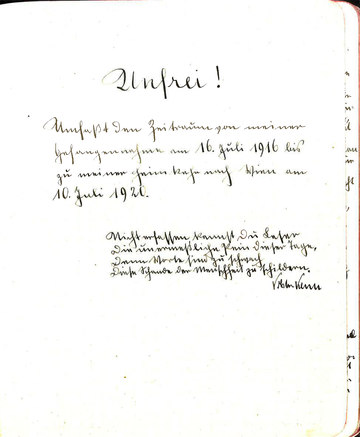 Unfrei!
Umfaßt den Zeitraum von meiner
Gefangennahme am 16. Juli 1916 bis
zu meiner Heimkehr nach Wien am
10. Juli 1920.
Nicht erfassen kannst du Leser
Die unermeßliche Pein dieser Tage,
Denn Worte sind zu schwach
Diese Schande der Menschheit zu schildern.